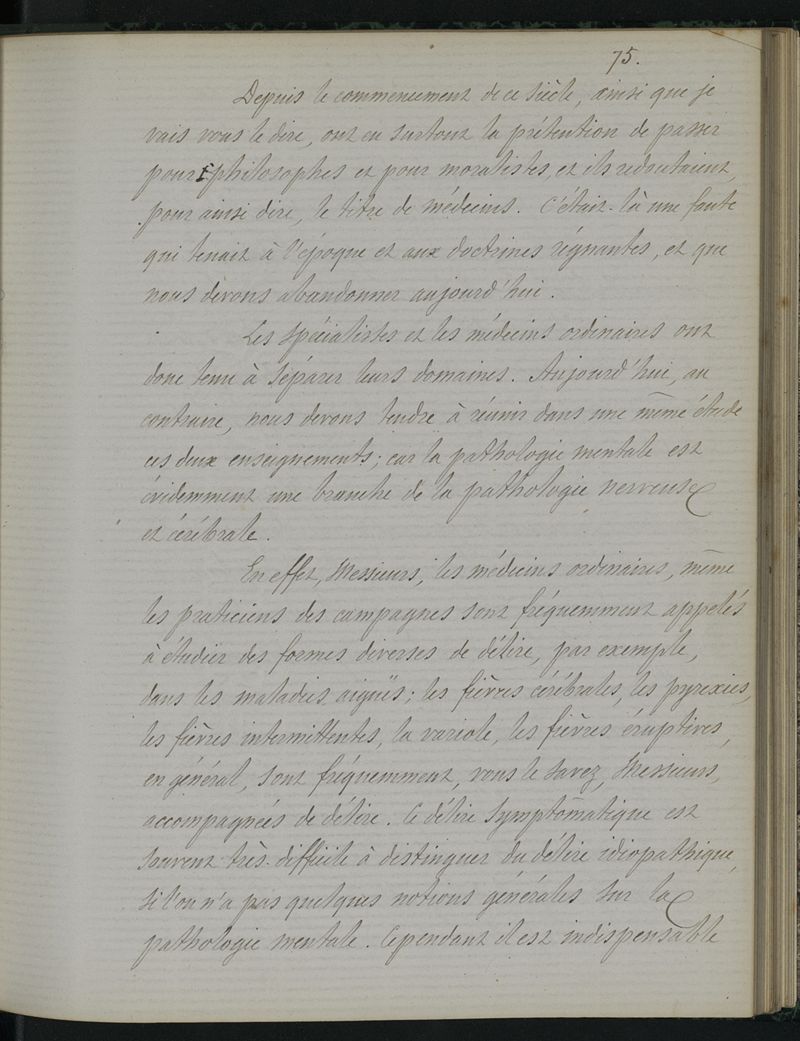 75.
Depuis le commencement de ce siècle, ainsi que je
vais vous le dire, ont eu surtout la prétention de passer
pour philosophes et pour moralistes, et ils redoutaient,
pour ainsi dire, le titre de médecins. C'était-là une faute
qui tenait à l'époque et aux doctrines régnantes, et que
nous devons abandonner aujourd'hui.
Les spécialistes et les médecins ordinaires ont
donc tenu à séparer leurs domaines. Aujourd'hui, au
contraire, nous devons tendre à réunir dans une même étude
ces deux enseignements; car la pathologie mentale est
évidemment une branche de la pathologie nerveuse
et cérébrale.
En effet, Messieurs, les médecins ordinaires, même
les praticiens des campagnes sont fréquemment appelés
à étudier des formes diverses de délire, par exemple,
dans les maladies aiguës; les fièvres cérébrales, les pyrexies,
les fièvres intermittentes, la variole, les fièvres éruptives,
en général, sont fréquemment, vous le savez, Messieurs,
accompagnées de délire. Ce délire symptômatique est
souvent très-difficile à distinguer du délire idiopathique,
si l'on n'a pas quelques notions générales sur la
pathologie mentale. Cependant il est indispensable